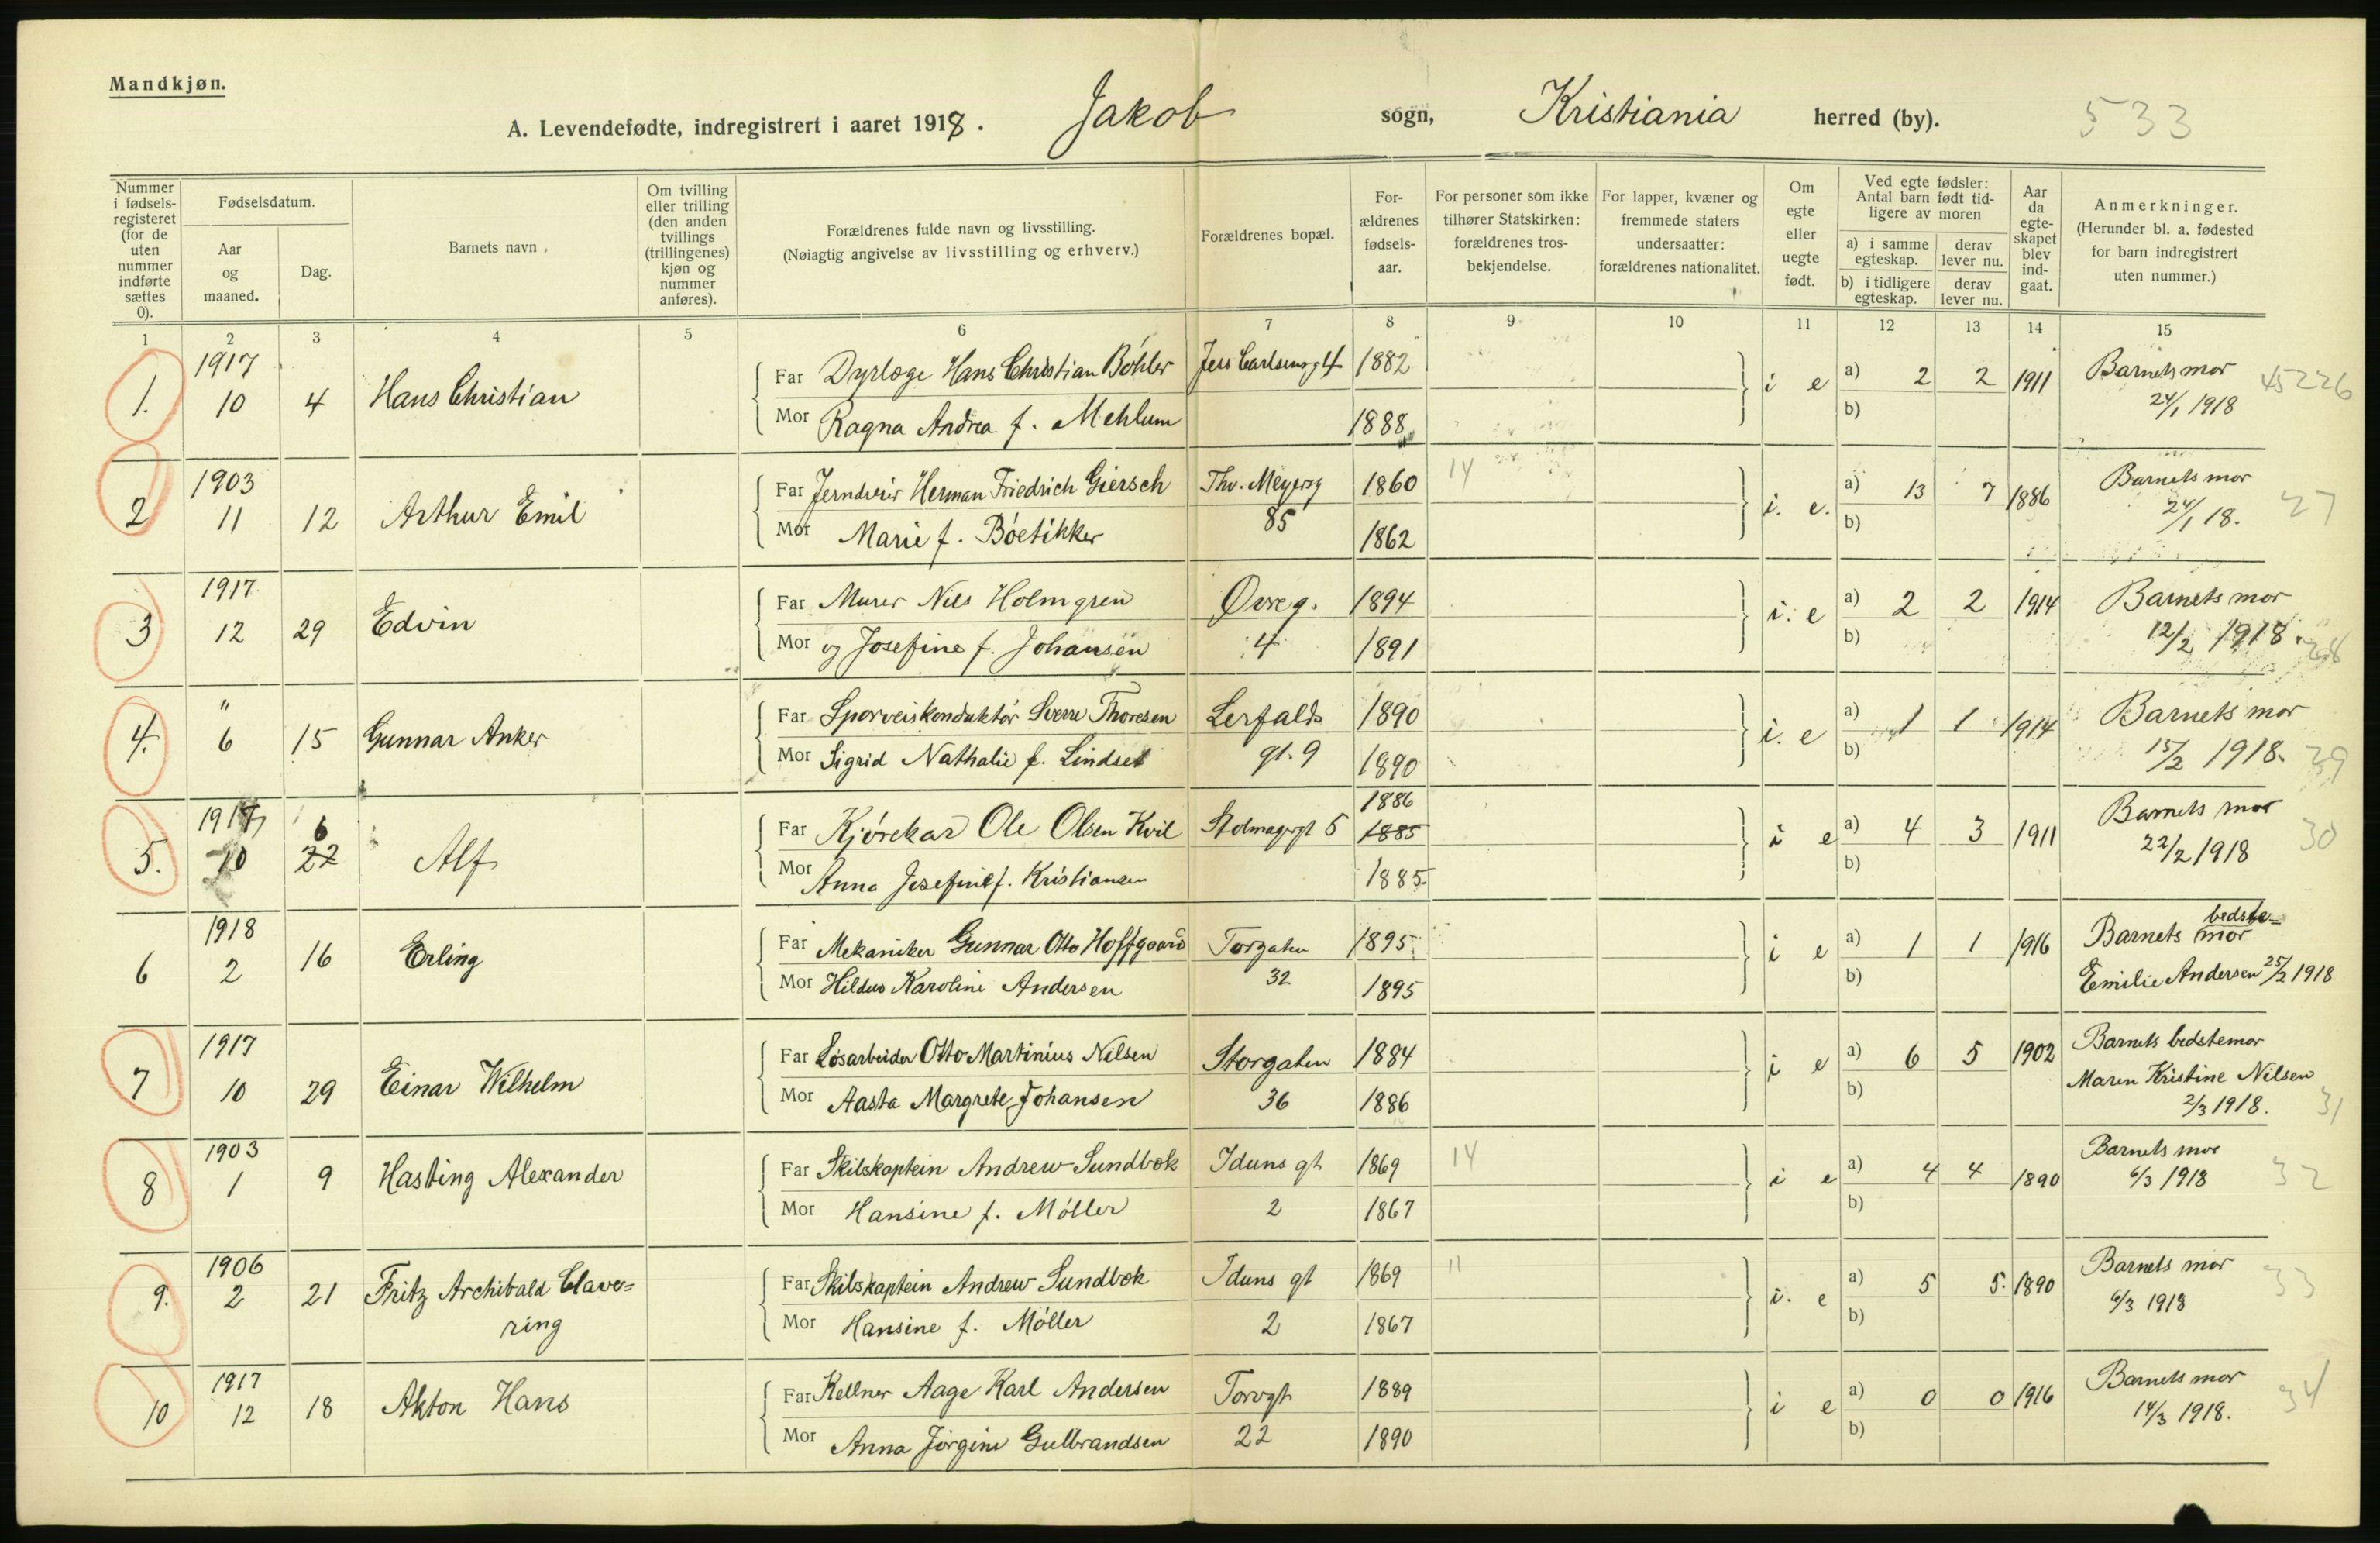 Mandkjøn.
A. Levendefødte, indregistrert i aaret 1918. Jakob sogn, Kristiania herred (by). 533
Nummer i fødsels-registeret (for de uten nummer indførte sættes 0).
Fødselsdatum.
Aar og maaned.
Dag.
Barnets navn.
Om tvilling eller trilling (den anden tvillings (trillingenes) kjøn og nummer anføres).
Forældrenes fulde navn og livsstilling.
(Nøiagtig angivelse av livsstilling og erhverv.)
Forældrenes bopæl.
For-ældrenes fødsels-aar.
For personer som ikke tilhører Statskirken: forældrenes tros-bekjendelse.
For lapper, kvæner og fremmede staters undersaatter: forældrenes nationalitet.
Om egte eller uegte født.
Ved egte fødsler: Antal barn født tid-ligere av moren
a) i samme egteskap. derav lever nu.
b) i tidligere egteskap. derav lever nu.
Aar da egte-skapet blev ind-gaat.
Anmerkninger.
(Herunder bl. a. fødested for barn indregistrert uten nummer.)
1 2 3 4 5 6 7 8 9 10 11 12 13 14 15
1. 1917 10 4 Hans Christian Far Dyrlæge Hans Christian Bøhler Jess Carlsensg 4 1882 i e a) 2 2 1911 Barnets mor 45226
Mor Ragna Andrea f. Mehlum 1888 b) 24/1 1918
2 1903 11 12 Arthur Emil Far Jerndreier Herman Friedrich Giersch Thv. Meyersg 1860 14 i. e. a) 13 7 1886 Barnets mor 27
Mor Marie f. Bóetikker 85 1862 b) 24/1 18.
3 1917 12 29 Edvin Far Murer Nils Holmgren Øvre g. 1894 i. e a) 2 2 1914 Barnets mor
Mor og Josefine f. Johansen 4 1891 b) 12/2 1918. 28
4. " 6 15 Gunnar Anker Far Sporveiskonduktør Sverre Thoresen Lerfalds 1890 i. e a) 1 1 1914 Barnets mor
Mor Sigrid Nathalie f. Lindset gt. 9 1890 b) 15/2 1918. 29
5. 1917 10 6 22 Alf Far Kjørekar Ole Olsen Kvil Stolmagergt 5 1886 1885 i e a) 4 3 1911 Barnets mor 30
Mor Anna Josefine f. Kristiansen 1885 b) 22/2 1918
6 1918 2 16 Erling Far Mekaniker Gunnar Otto Hoffgaard Torgaten 1895 i e a) 1 1 1916 Barnets bedste=mor
Mor Hildur Karoline Andersen 32 1895 b) Emilie Andersen 25/2 1918
7 1917 10 29 Einar Wilhelm Far Løsarbeider Otto Martinius Nilsen Storgaten 1884 i e a) 6 5 1902 Barnets bedstemor
Maren Kristine Nilsen
Mor Aasta Margrete Johansen 36 1886 b) 2/3 1918. 31
8 1903 1 9 Hasting Alexander Far Skibskaptein Andrew Sundbæk Iduns gt 1869 14 i e a) 4 4 1890 Barnets mor 32
Mor Hansine f. Møller 2 1867 b) 6/3 1918
9. 1906 2 21 Fritz Archibald Clave=ring Far Skibskaptein Andrew Sundbæk Iduns gt 1869 11 i. e a) 5 5. 1890 Barnets mor 33
Mor Hansine f. Møller 2 1867 b) 6/3 1918
10 1917 12 18 Akton Hans Far Kellner Aage Karl Andersen Torvgt 1889 i e a) 0 0 1916 Barnets mor 34
Mor Anna Jørgine Gulbrandsen 22 1890 b) 14/3 1918.